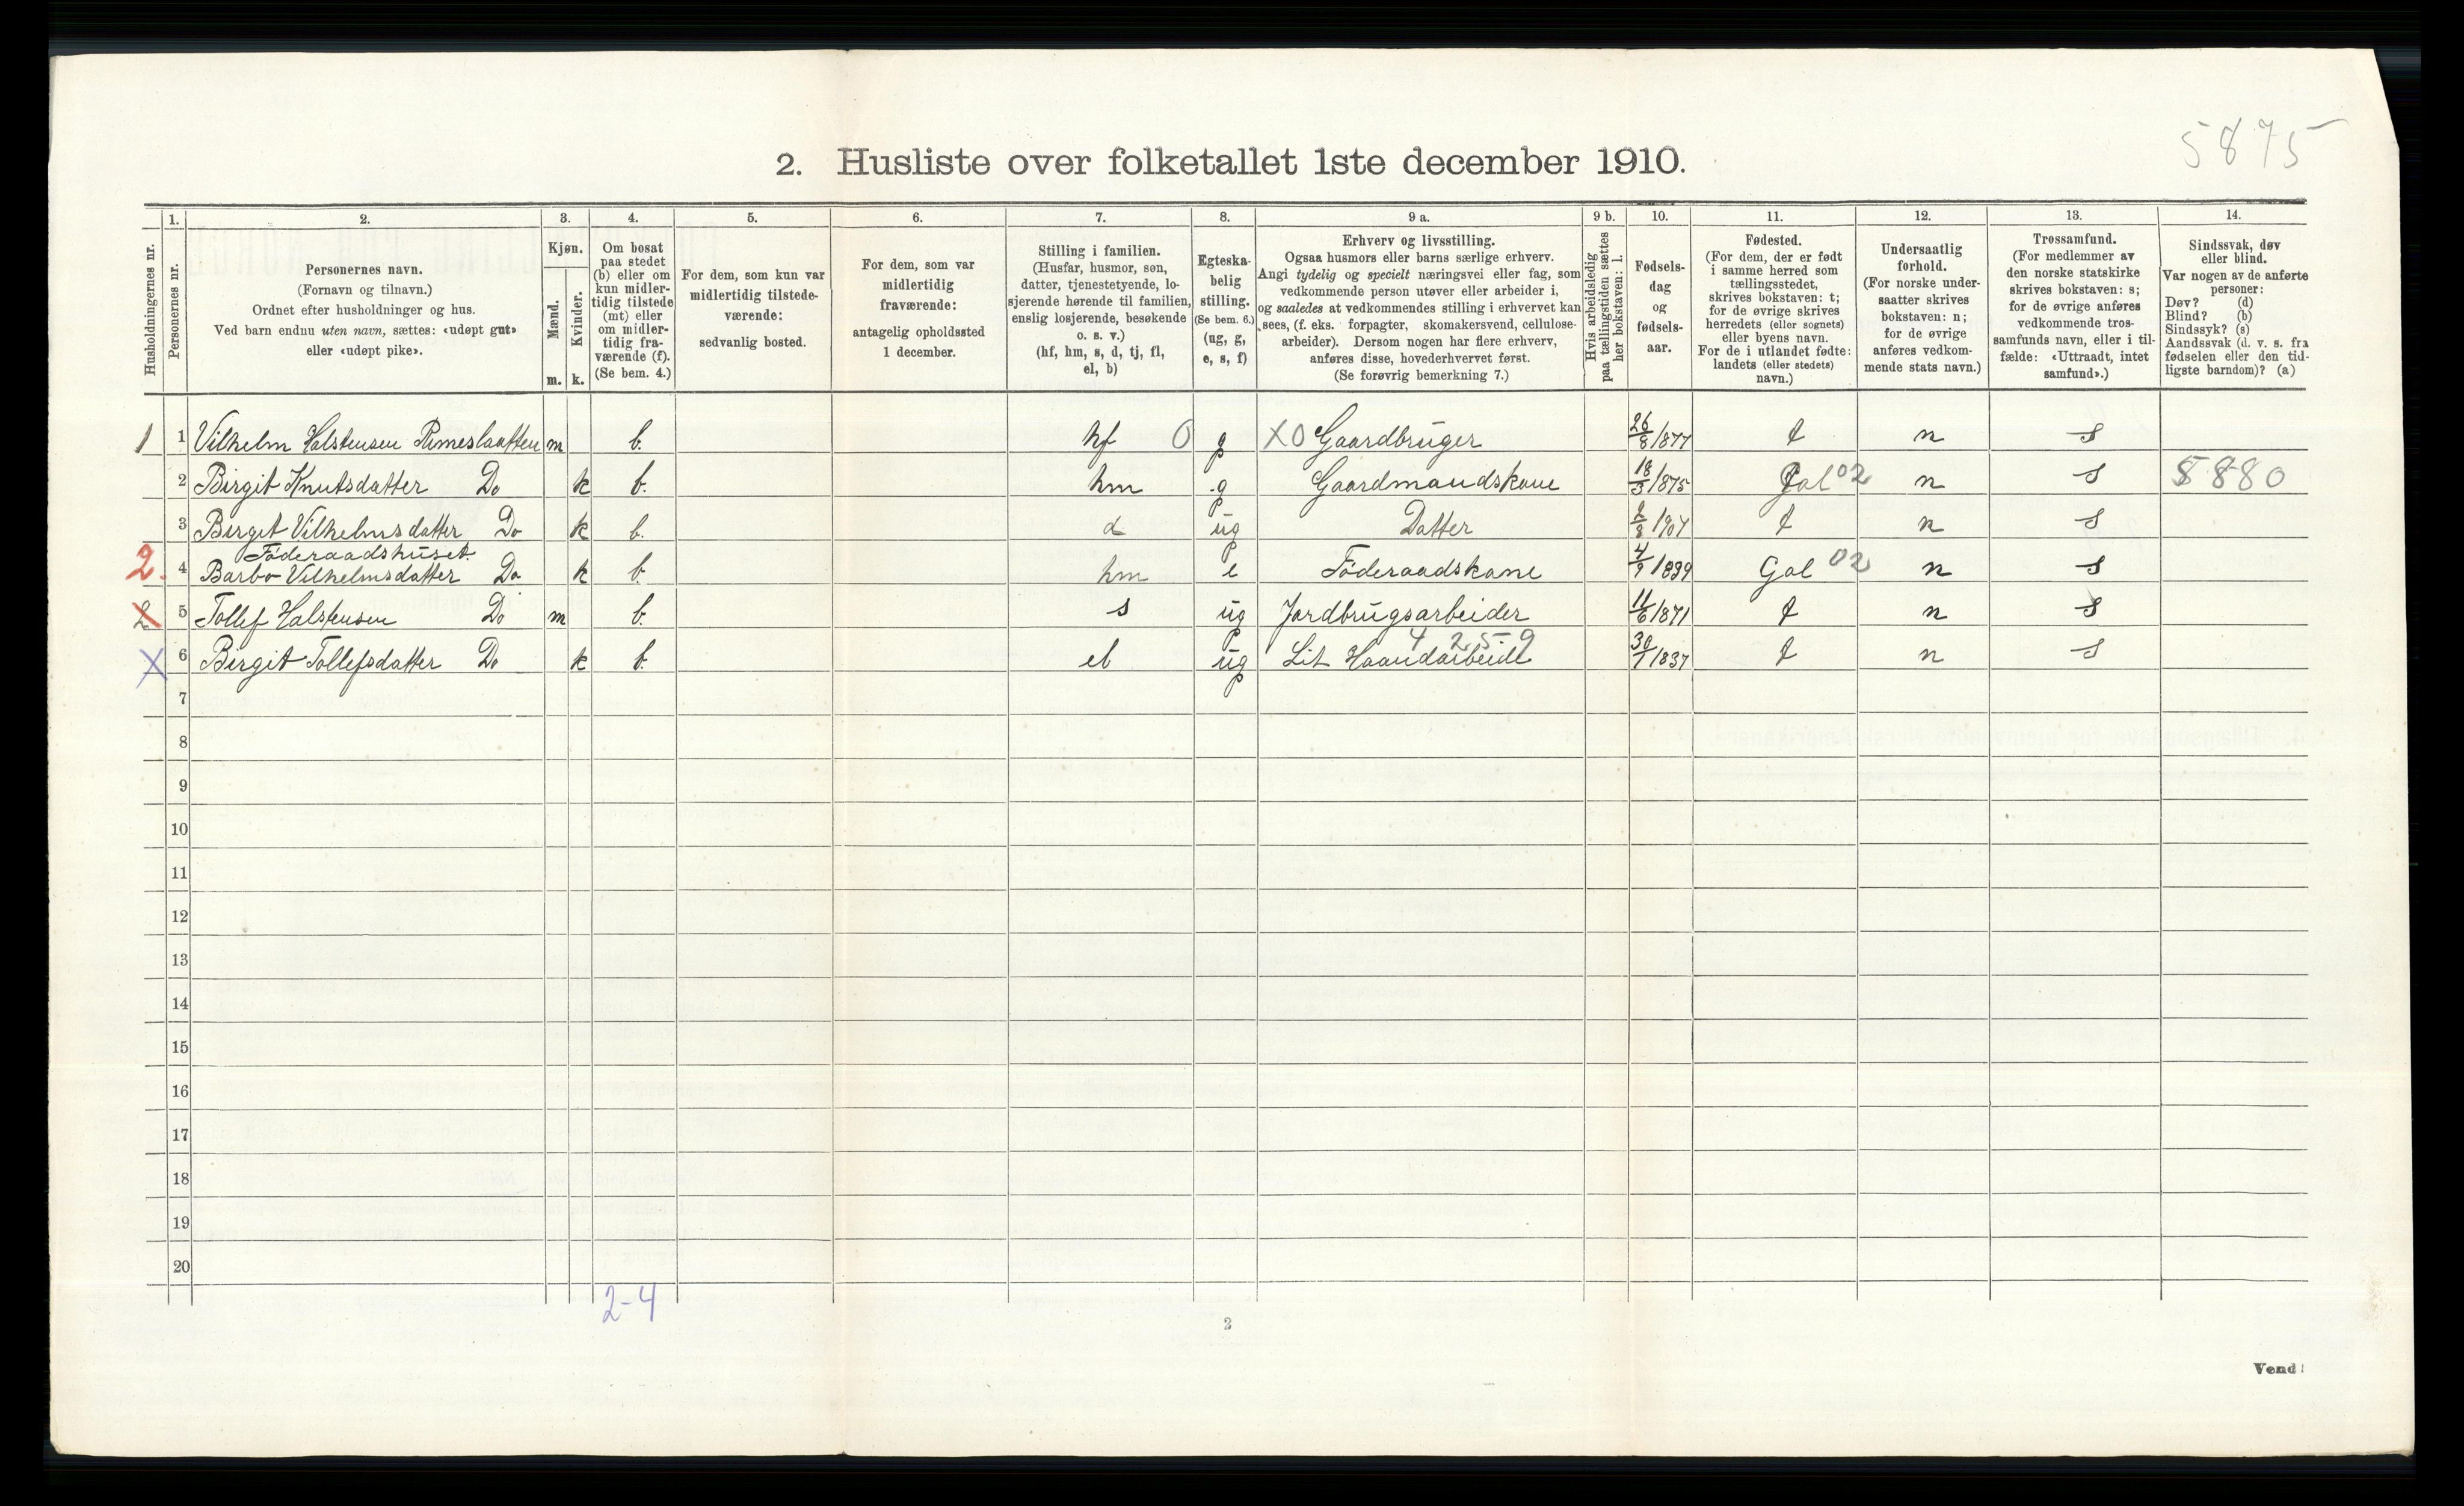 5875
2. Husliste over folketallet 1ste december 1910.
1. 2. 3. 4. 5. 6. 7. 8. 9 a. 9 b. 10. 11. 12. 13. 14.
Husholdningernes nr.
Personernes nr.
Personernes navn.
(Fornavn og tilnavn.)
Ordnet efter husholdninger og hus.
Ved barn endnu uten navn, sættes: «udøpt gut»
eller «udøpt pike».
Kjøn.
Mænd.
Kvinder.
m. k.
Om bosat
paa stedet
(b) eller om
kun midler-
tidig tilstede
(mt) eller
om midler-
tidig fra-
værende (f).
(Se bem. 4.)
For dem, som kun var
midlertidig tilstede-
værende:
sedvanlig bosted.
For dem, som var
midlertidig
fraværende:
antagelig opholdssted
1 december.
Stilling i familien.
(Husfar, husmor, søn,
datter, tjenestetyende, lo-
sjerende hørende til familien,
enslig losjerende, besøkende
o. s. v.)
(hf, hm, s, d, tj, fl,
el, b)
Egteska-
belig
stilling.
(Se bem. 6.)
(ug, g,
e, s, f)
Erhverv og livsstilling.
Ogsaa husmors eller barns særlige erhverv.
Angi tydelig og specielt næringsvei eller fag, som
vedkommende person utøver eller arbeider i,
og saaledes at vedkommendes stilling i erhvervet kan
sees, (f. eks. forpagter, skomakersvend, cellulose-
arbeider). Dersom nogen har flere erhverv,
anføres disse, hovederhvervet først.
(Se forøvrig bemerkning 7.)
Hvis arbeidsledig
paa tællingstiden sættes
her bokstaven: l.
Fødsels-
dag
og
fødsels-
aar.
Fødested.
(For dem, der er født
i samme herred som
tællingsstedet,
skrives bokstaven: t;
for de øvrige skrives
herredets (eller sognets)
eller byens navn.
For de i utlandet fødte:
landets (eller stedets)
navn.)
Undersaatlig
forhold.
(For norske under-
saatter skrives
bokstaven: n;
for de øvrige
anføres vedkom-
mende stats navn.)
Trossamfund.
(For medlemmer av
den norske statskirke
skrives bokstaven: s;
for de øvrige anføres
vedkommende tros-
samfunds navn, eller i til-
fælde: «Uttraadt, intet
samfund».)
Sindssvak, døv
eller blind.
Var nogen av de anførte
personer:
Døv? (d)
Blind? (b)
Sindssyk? (s)
Aandssvak (d. v. s. fra
fødselen eller den tid-
ligste barndom)? (a)
1 1 Vilhelm Halstensen m b. hf 0 g X0 Gaardbruger 26/8 1877 t n s
2 Birgit Knutsdatter Do k b. hm g Gaardmandskone 18/3 1875 Gol 02 n s 5880
3 Birget Vilhelmsdatter Do k b. d ug Datter 907 t n s
Föderaadshuset
2. 4 Barbo Vilhelmsdatter Do k b. hm e Föderaadskone 1839 Gol 02 n s
2 5 Tollef Halstensen Do m b. s ug Jordbrugsarbeider 11/6 1871 t n s
4 2 5-9
X 6 Birgit Tollefsdatter Do k b el ug Lit Haandarbeide 30/1 1837 t n s
7
8
9
10
11
12
13
14
15
16
17
18
19
20
2-4
2
Vend!